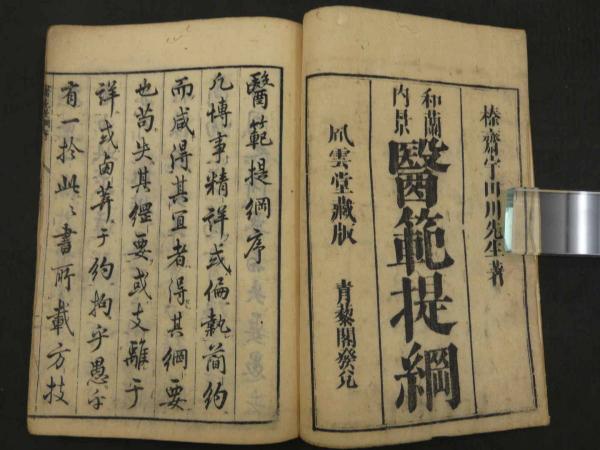 榛齋宇田川先生著
和蘭
内景
醫範提綱
風雲堂藏版
青藜閣發兌
醫範提綱序
凡博事精詳或偏執簡約
而咸得其宜者得其綱要
也苟失其綱要或支離于
詳或鹵莽于約拘乎愚乎
有一於此〻書所載方技